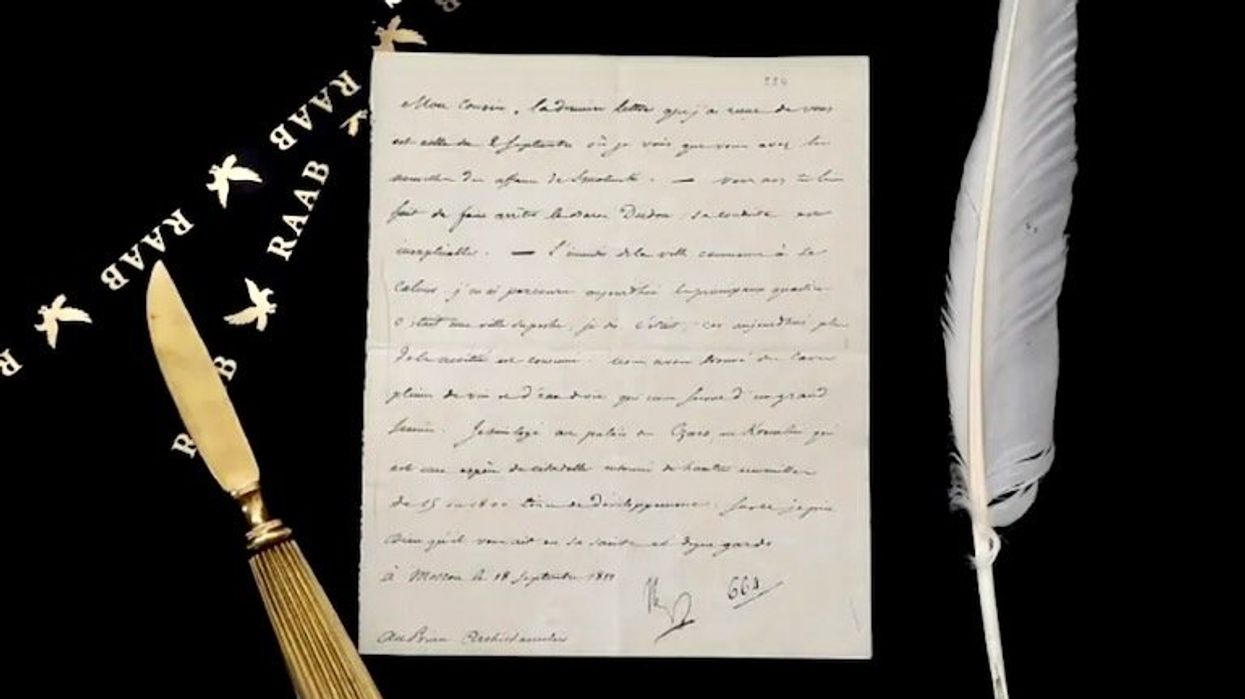 RAAB
RAAB
RAAB
RAAB
Mon Cousin, la derniere lettre que j'ai recue de vous
est celle du 2 Septembre où je vois que vous avez les
nouvelles des affaires de Smolensk. — vous avez très bien
fait de faire arrêter le Baron Dudon, sa conduite est
inexplicable. — l'incendie de la ville commence à se
calmer. j'en ai parcouru aujourd'hui les principaux quartiers
c'était une ville superbe, je dis c'était, car aujourd'hui plus
de la moitié est consumée. nous avons trouvé des caves
pleines de vin et d'eau de vie qui nous seront d'un grand
service. Je suis logé au palais des Czars au Kremlin qui
est une espèce de citadelle entourée de hautes murailles
de 15 à 1800 toises de développement. Sur ce je prie
Dieu qu'il vous ait en sa sainte et digne garde
à Moscou le 18 Septembre 1812
Au Prince Archichancelier